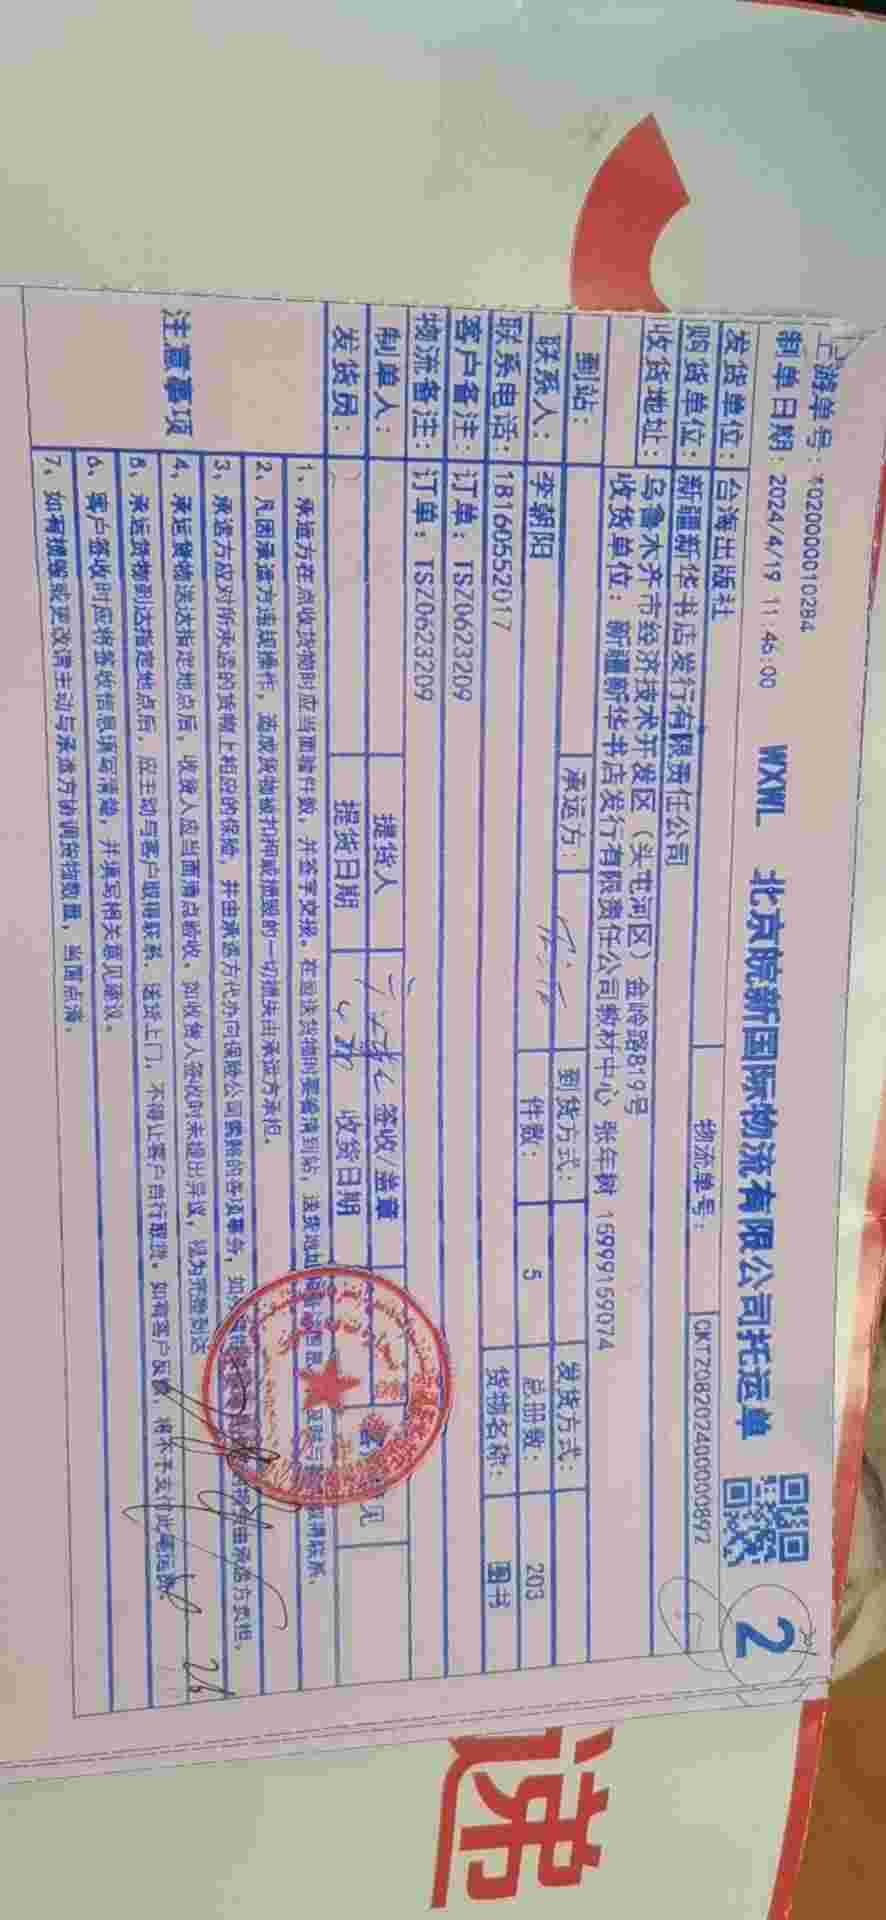 上游单号：1020000010284
制单日期：2024/4/19 11:46:00 WXWL 北京皖新国际物流有限公司托运单 2
发货单位：台海出版社 物流单号：CKTZ0820240000892
购货单位：新疆新华书店发行有限责任公司
收货地址：乌鲁木齐市经济技术开发区（头屯河区）金岭路819号
收货单位：新疆新华书店发行有限责任公司教材中心 张年树 15999159074
到站： 承运方： 到货方式： 发货方式：
联系人：李朝阳 件数：5 总册数：203
联系电话：18160552017 货物名称：图书
客户备注：订单：TSZ0623209
物流备注：订单：TSZ0623209
制单人： 提货人 签收/盖章 见
发货员： 提货日期 收货日期
注意事项
1、承运方在点收货物时应当面验件数，并签字交接。在运送货物时要看清到站，送货地址
2、凡因承运方违规操作，造成货物被扣和或损毁的一切损失由承运方承担。
3、承运方应对所承运的货物上相应的保险，并由承运方代办向保险公司索赔的各项事务，由承运方负担。
4、承运货物送达指定地点后，收货人应当面清点验收，如收货人签收时未提出异议，视为完整到达
5、承运货物到达指定地点后，应主动与客户取得联系，送货上门，不得让客户自行取货。如有客户反馈，将不予支付此笔运费。
6、客户签收时应将签收信息填写清楚，并填写相关意见建议。
7、如有损毁或更改请主动与承运方协调货物数量，当面点清。
递